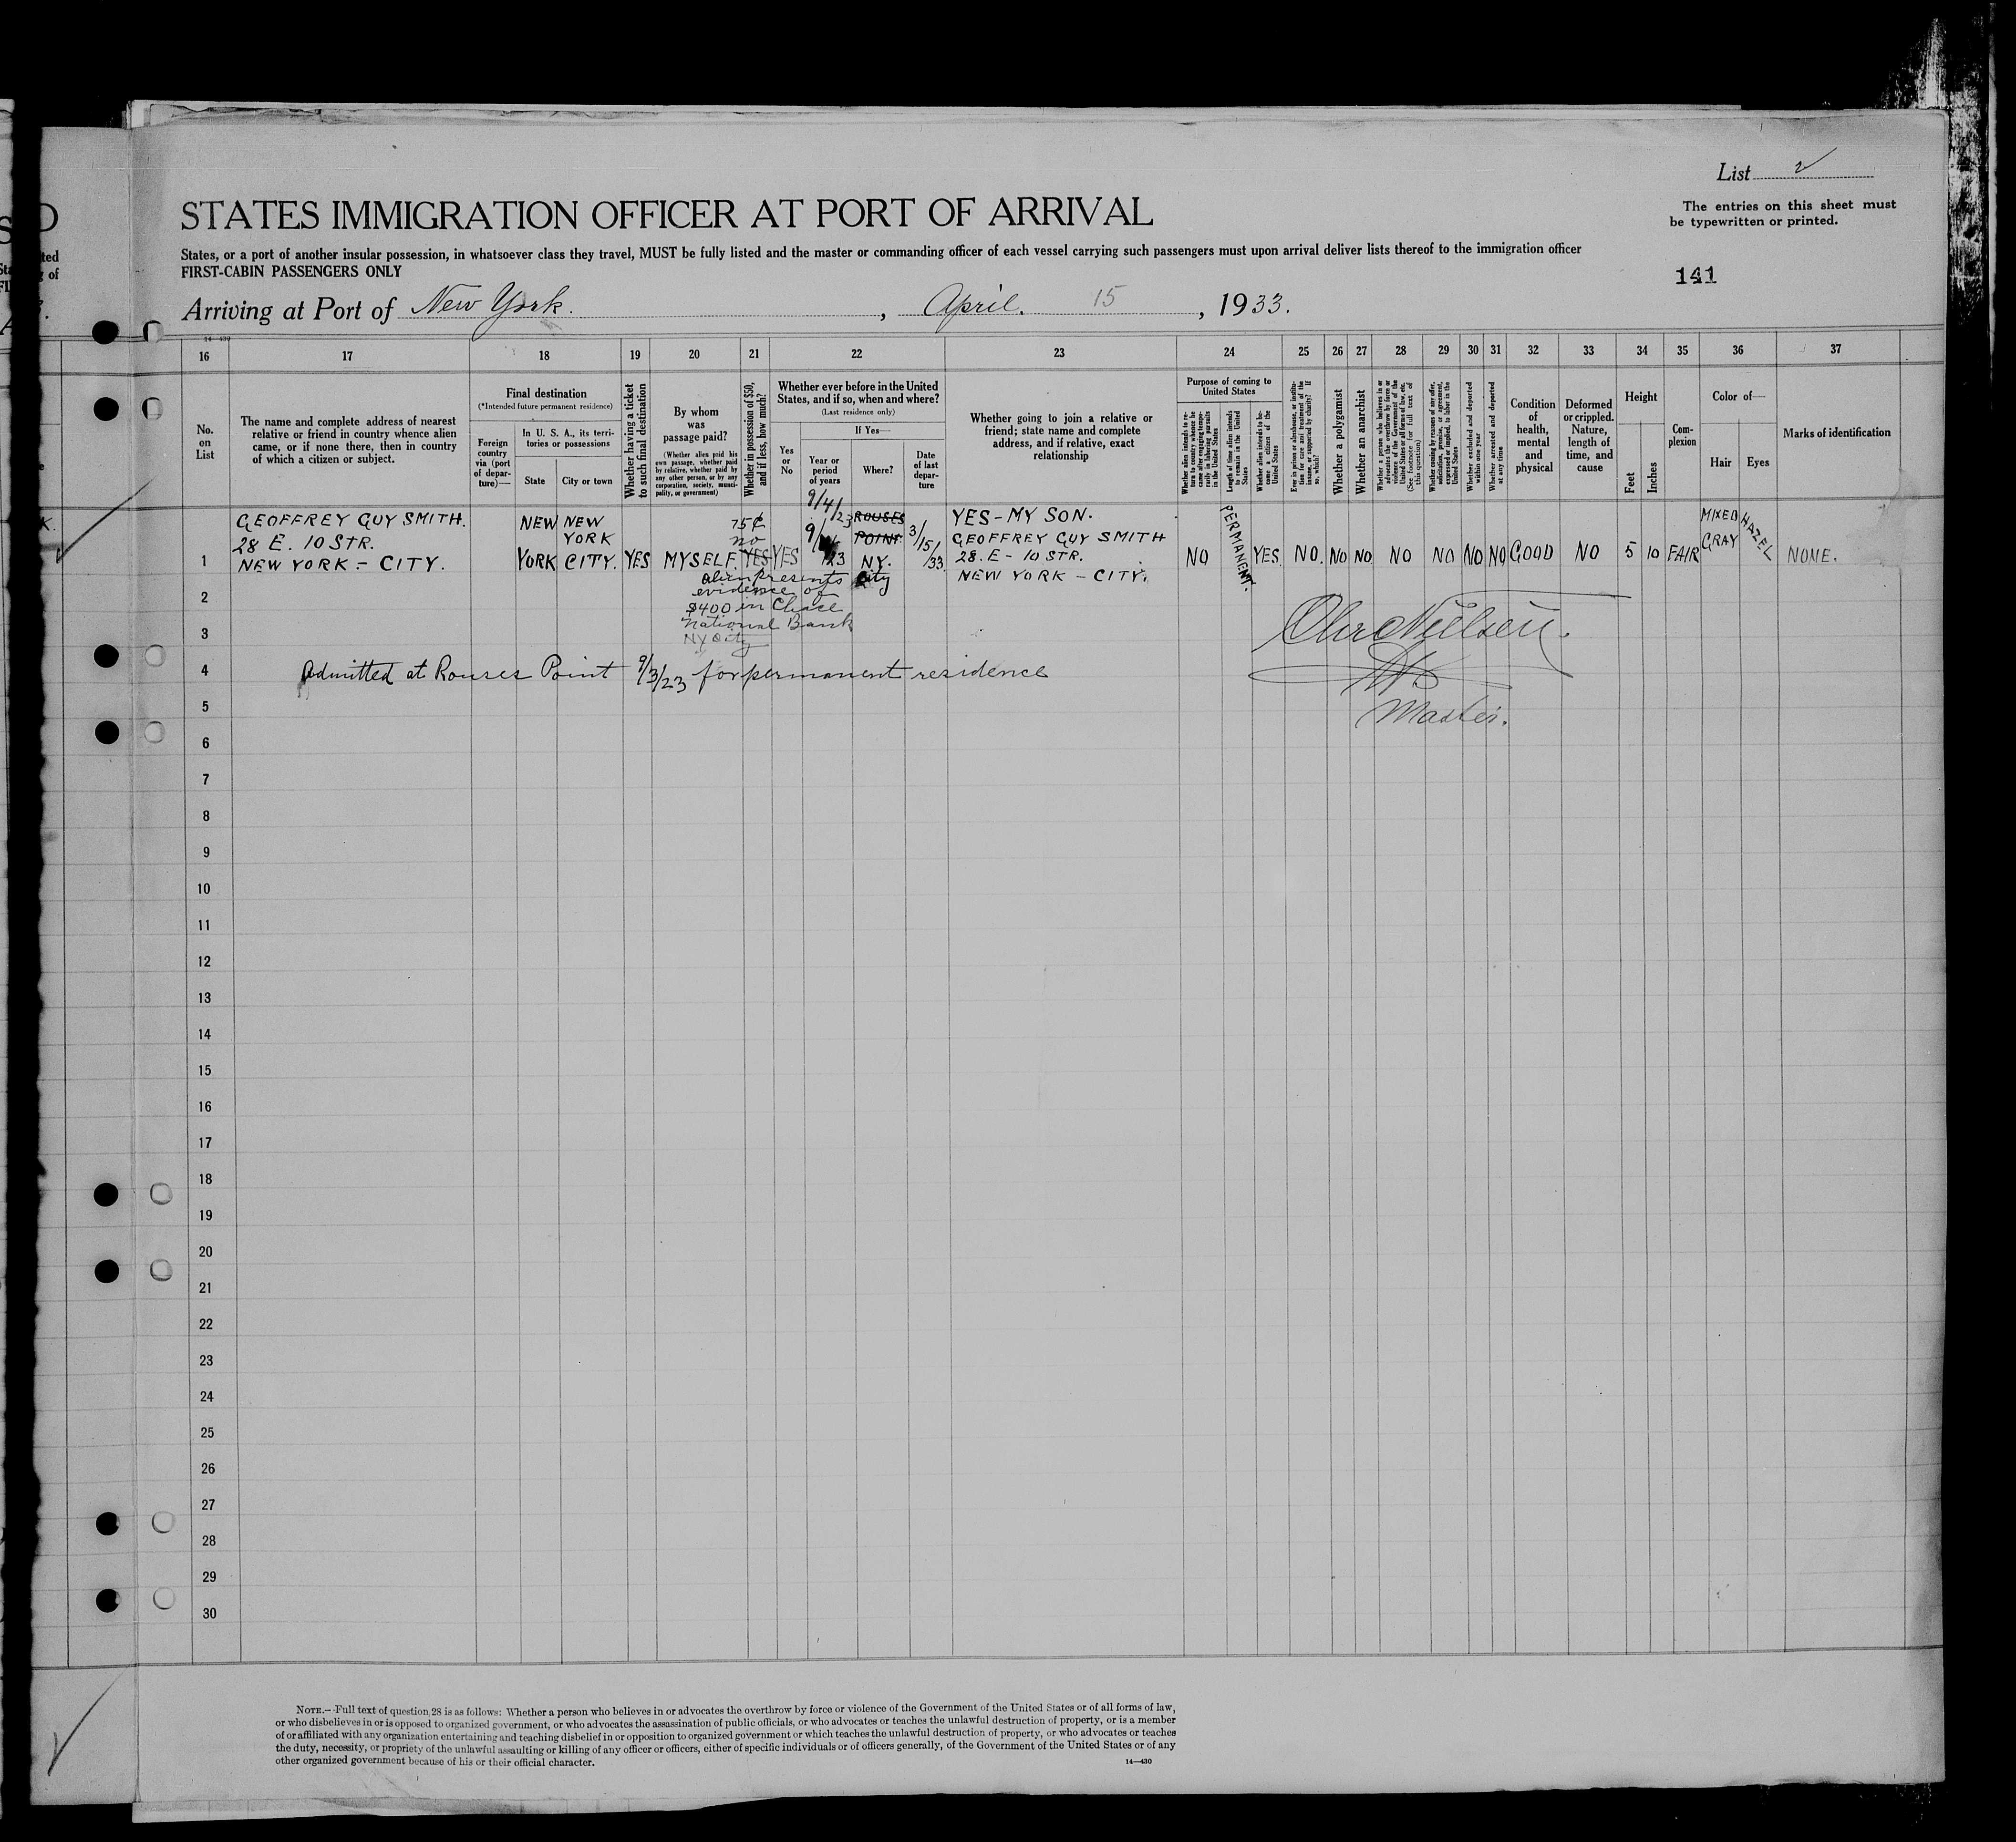 List 2
STATES IMMIGRATION OFFICER AT PORT OF ARRIVAL
The entries on this sheet must
be typewritten or printed.
States, or a port of another insular possession, in whatsoever class they travel, MUST be fully listed and the master or commanding officer of each vessel carrying such passengers must upon arrival deliver lists thereof to the immigration officer
FIRST-CABIN PASSENGERS ONLY
141
Arriving at Port of New York. , April. 15 , 1933.
14—430
16 17 18 19 20 21 22 23 24 25 26 27 28 29 30 31 32 33 34 35 36 37
No.
on
List
The name and complete address of nearest
relative or friend in country whence alien
came, or if none there, then in country
of which a citizen or subject.
Final destination
(*Intended future permanent residence)
Foreign
country
via (port
of depar-
ture)—
In U. S. A., its terri-
tories or possessions
State
City or town
Whether having a ticket
to such final destination
By whom
was
passage paid?
(Whether alien paid his
own passage, whether paid
by relative, whether paid by
any other person, or by any
corporation, society, munici-
pality, or government)
Whether in possession of $50,
and if less, how much?
Whether ever before in the United
States, and if so, when and where?
(Last residence only)
Yes
or
No
If Yes—
Year or
period
of years
Where?
Date
of last
depar-
ture
Whether going to join a relative or
friend; state name and complete
address, and if relative, exact
relationship
Purpose of coming to
United States
Whether alien intends to re-
turn to country whence he
came after engaging tempo-
rarily in laboring pursuits
in the United States
Length of time alien intends
to remain in the United
States
Whether alien intends to be-
come a citizen of the
United States
Ever in prison or almshouse, or institu-
tion for care and treatment of the
insane, or supported by charity? If
so, which?
Whether a polygamist
Whether an anarchist
Whether a person who believes in or
advocates the overthrow by force or
violence of the Government of the
United States or all forms of law, etc.
(See footnote for full text of
this question)
Whether coming by reason of any offer,
solicitation, promise, or agreement,
expressed or implied, to labor in the
United States
Whether excluded and deported
within one year
Whether arrested and deported
at any time
Condition
of
health,
mental
and
physical
Deformed
or crippled.
Nature,
length of
time, and
cause
Height
Feet
Inches
Com-
plexion
Color of—
Hair
Eyes
Marks of identification
K.
GEOFFREY GUY SMITH.
28 E. 10 STR.
NEW YORK - CITY.
NEW
YORK
NEW
YORK
CITY.
YES
MYSELF.
75¢
no
YES
YES
9/4/23
9/ /23
ROUSES
POINT.
NY.
City
3/15/33
YES - MY SON.
GEOFFREY GUY SMITH
28. E - 10 STR.
NEW YORK - CITY.
NO
PERMANENT.
YES
NO.
NO
NO
NO
NO
NO
NO
GOOD
NO
5
10
FAIR
MIXED
GRAY
HAZEL
NONE.
alien presents
evidence of
$400 in Chase
National Bank
NY City
Admitted at Rouses Point 9/3/23 for permanent residence
Master.
1
2
3
4
5
6
7
8
9
10
11
12
13
14
15
16
17
18
19
20
21
22
23
24
25
26
27
28
29
30
NOTE.—Full text of question 28 is as follows: Whether a person who believes in or advocates the overthrow by force or violence of the Government of the United States or of all forms of law,
or who disbelieves in or is opposed to organized government, or who advocates the assassination of public officials, or who advocates or teaches the unlawful destruction of property, or is a member
of or affiliated with any organization entertaining and teaching disbelief in or opposition to organized government or which teaches the unlawful destruction of property, or who advocates or teaches
the duty, necessity, or propriety of the unlawful assaulting or killing of any officer or officers, either of specific individuals or of officers generally, of the Government of the United States or of any
other organized government because of his or their official character.
14—430